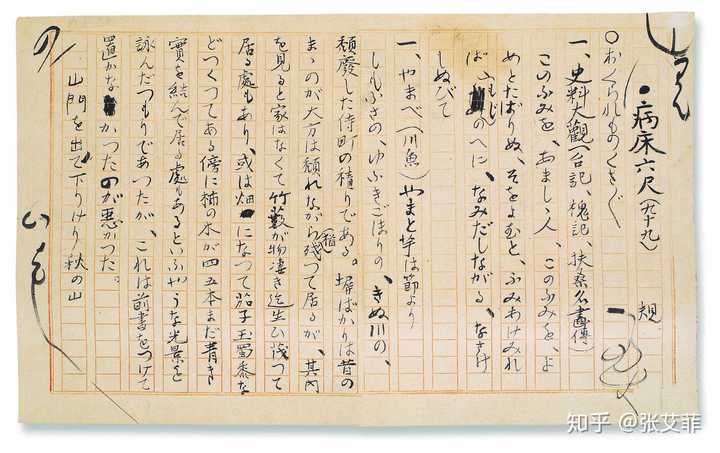 病床六尺(九十九)
規
○おくられものくさぐさ
一、史料大觀(台記、槐記、扶桑名畫傳)
このふみを、あましゝ人、このふみを、よ
めとたばりぬ、そをよむと、ふみあけみれ
ば、もじのへに、なみだしながる、なさけ
しぬびて
一、やまべ(川魚)やまと芋は節より
しもふさの、ゆふきごほりの、きぬ川の、
頽廢した侍町の積りである。塀ばかりは昔の
まゝのが大方は頽れながら殘つて居るが、其内
を見ると家はなくて竹藪が物凄き迄生ひ茂つて
居る處もあり、或は畑になつて茄子玉蜀黍な
どつくつてある傍に柿の木が四五本まだ青き
實を結んで居る處もあるといふやうな光景を
詠んだつもりであつたが、これは前書をつけて
置かなかつたのが悪かつた。
山門を出で下りけり秋の山
知乎 @张艾菲